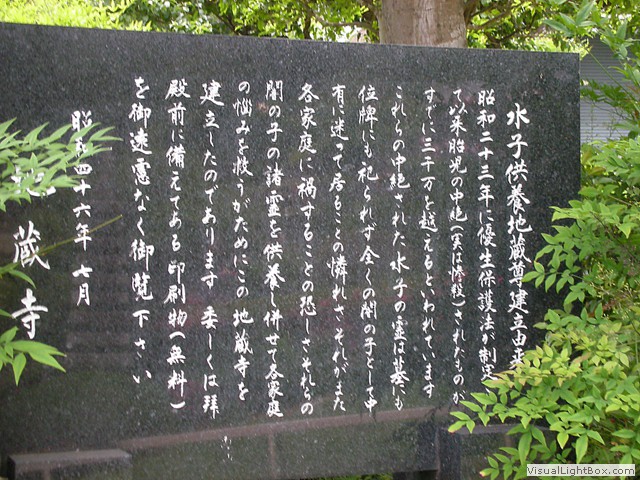 水子供養地蔵尊建立由来
昭和二十三年に優生保護法が制定
て以来胎児の中絶(実は惨殺)されたものが
すでに三千万を越えるといわれています
これらの中絶された水子の霊は墓にも
位牌にも祀られず全くの闇の子として中
有に迷って居ることの憐れさそれがまた
各家庭に禍することの恐しさそれらの
闇の子の諸霊を供養し併せて各家庭
の悩みを救うがためにこの地蔵寺を
建立したのであります 委しくは拝
殿前に備えてある印刷物(無料)
を御遠慮なく御覧下さい
昭和四十六年 七月
地蔵寺
VisualLightBox.com